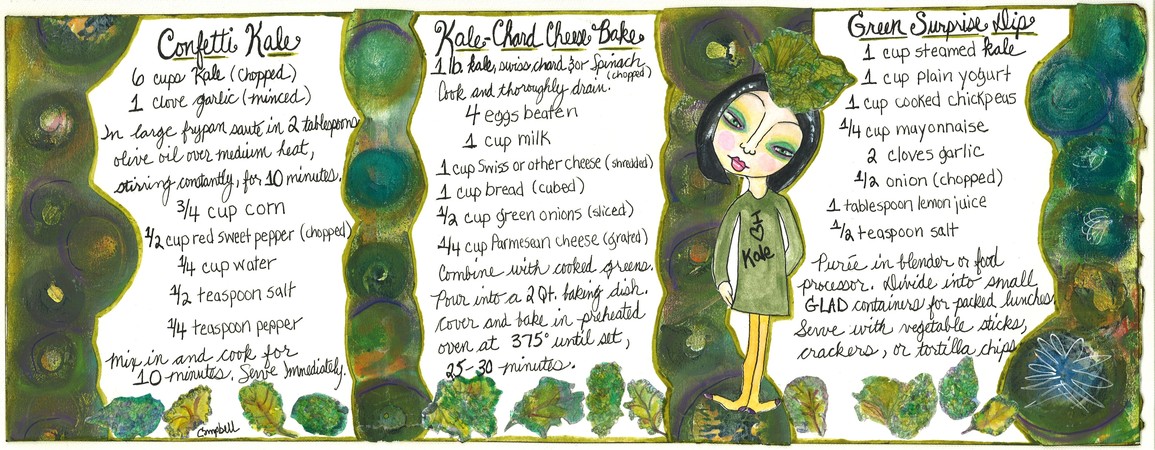 Confetti Kale
6 cups Kale (chopped)
1 clove garlic (minced)
In large frypan sauté in 2 tablespoons
olive oil over medium heat,
stirring constantly, for 10 minutes.
3/4 cup corn
1/2 cup red sweet pepper (chopped)
1/4 cup water
1/2 teaspoon salt
1/4 teaspoon pepper
Mix in and cook for
10 minutes. Serve Immediately.
Campbell
Kale-Chard Cheese Bake
1 lb. kale, swiss chard &/or Spinach
(chopped)
Cook and thoroughly drain.
4 eggs beaten
1 cup milk
1 cup Swiss or other cheese (shredded)
1 cup bread (cubed)
1/2 cup green onions (sliced)
1/4 cup Parmesean cheese (grated)
Combine with cooked greens.
Pour into a 2 Qt. baking dish.
Cover and bake in preheated
oven at 375° until set,
25-30 minutes.
I
Kale
Green Surprise Dip
1 cup steamed kale
1 cup plain yogurt
1 cup cooked chickpeas
1/4 cup mayonnaise
2 cloves garlic
1/2 onion (chopped)
1 tablespoon lemon juice
1/2 teaspoon salt
Purée in blender or food
processor. Divide into small
GLAD containers for packed lunches.
Serve with vegetable sticks,
crackers, or tortilla chips.